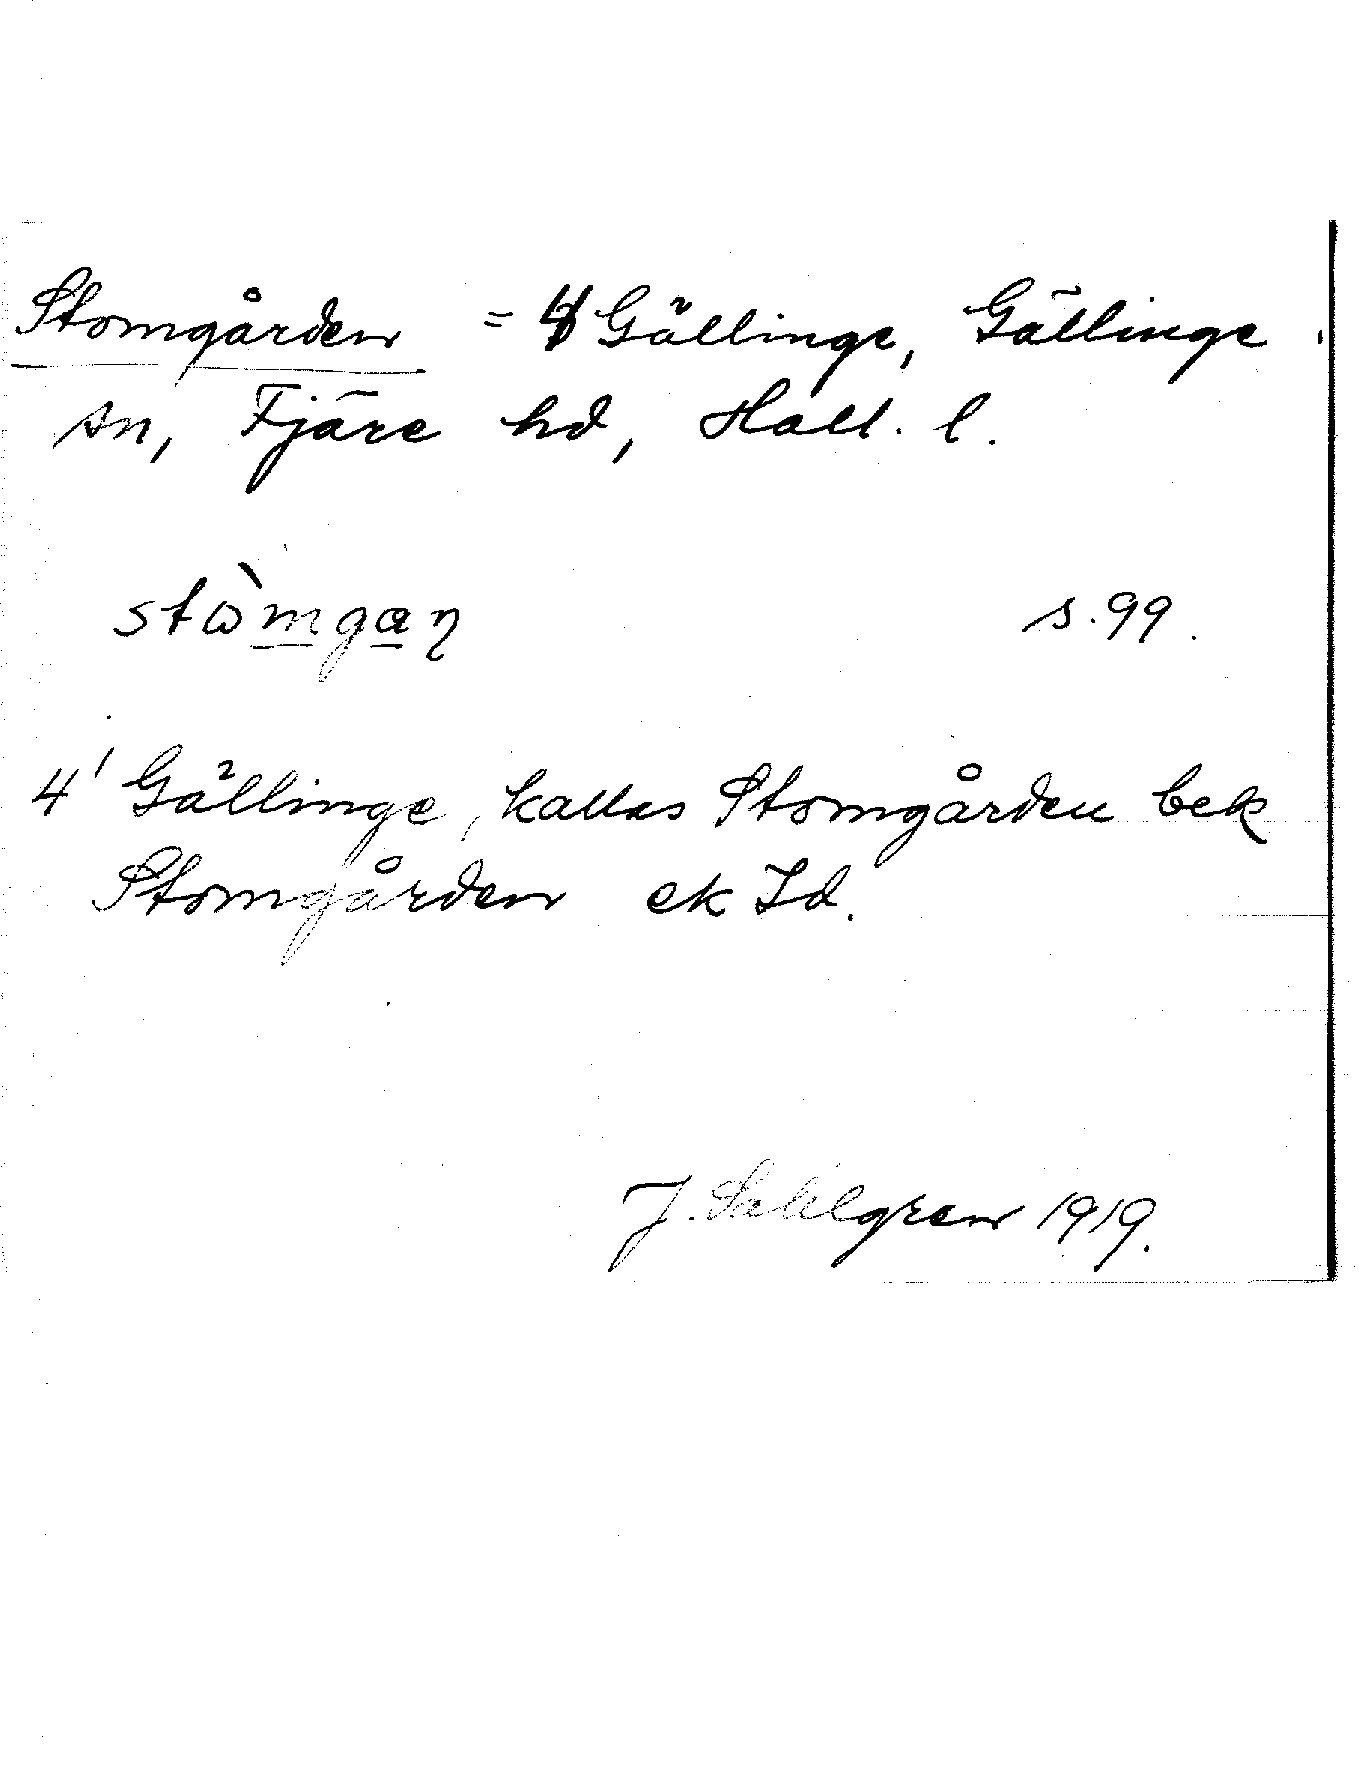 Stomgården = 4 Gällinge, Gällinge
sn, Fjäre hd, Hall. l.
stὼmgaꞃ s. 99.
4' Gällinge, kallas Stomgården bek
Stomgården ek Jd.
J. Sahlgren 1919.